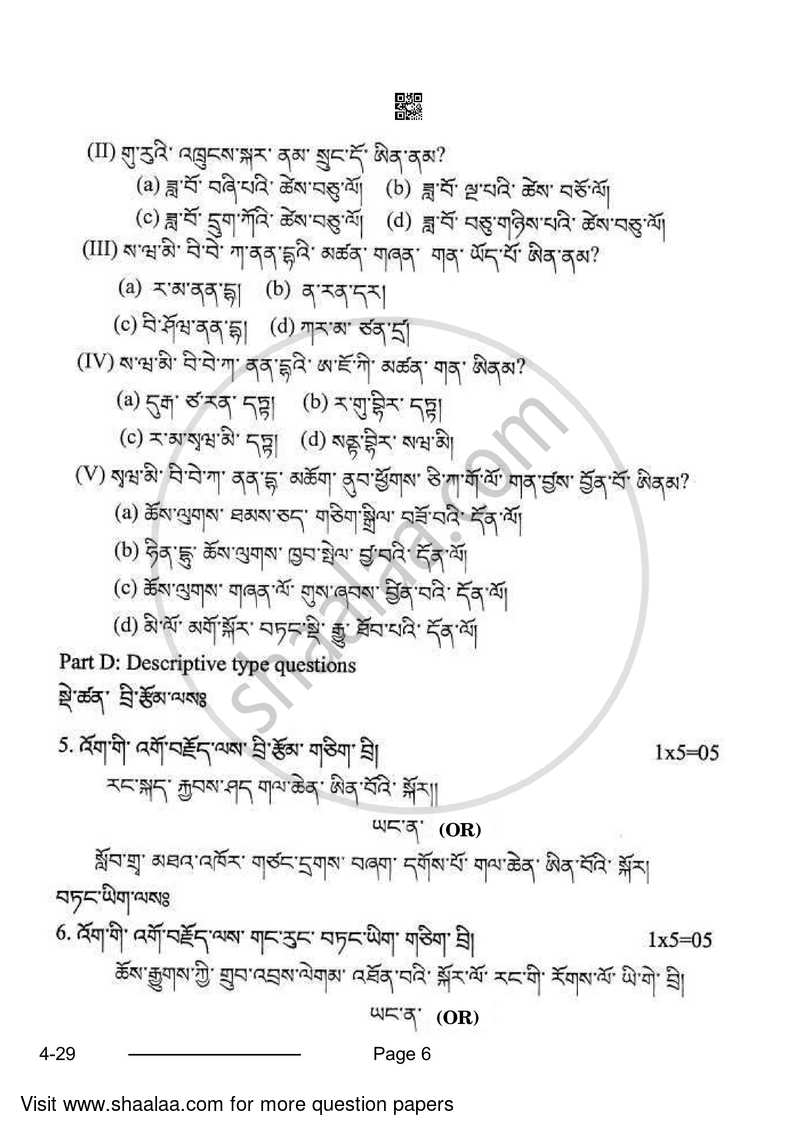 (II) གུ་རུའི་ འཁྲུངས་སྐར་ ནམ་ སྲུང་དོ་ ཨིན་ནམ?
(a) ཟླ་བོ་ བཞི་པའི་ ཚེས་བཅུ་ལོ། (b) ཟླ་བོ་ ལྔ་པའི་ ཚེས་ བཅོ་ལོ།
(c) ཟླ་བོ་ དྲུག་ཀོའི་ ཚེས་བཅུ་ལོ། (d) ཟླ་བོ་ བཅུ་གཉིས་པའི་ ཚེས་བཅུ་ལོ།
(III) ས་ཝ་མི་ བི་བེ་ ཀ་ནན་དྷའི་ མཚན་ གཞན་ གན་ ཡོད་པོ་ ཨིན་ནམ?
(a) ར་མ་ནན་དྷ། (b) ན་རན་དར།
(c) བི་ཤོཝ་ནན་དྷ། (d) ཀར་མ་ ཙན་དྲ།
(IV) ས་ཝ་མི་ བི་བེ་ཀ་ ནན་དྷའི་ ཨ་ཇོ་ཀི་ མཚན་ གན་ ཨིནམ?
(a) དུརྒ་ ཙ་རན་ དཏྟ། (b) ར་གུ་བྷིར་ དཏྟ།
(c) ར་མ་སྭཝ་མི་ དཏྟ། (d) སནྟ་བྷིར་ སཝ་མི།
(V) སྭཝ་མི་ བི་བེ་ཀ་ ནན་དྷ་ མཆོག་ ནུབ་ཕྱོགས་ ཅི་ཀ་གོ་ལོ་ གན་བྱས་ བྱོན་བོ་ ཨིནམ?
(a) ཆོས་ལུགས་ ཐམས་ཅད་ གཅིག་སྒྲིལ་ བཟོ་བའི་ དོན་ལོ།
(b) ཧིན་དུྷ་ ཆོས་ལུགས་ ཁྱབ་སྤེལ་ བྱ་བའི་ དོན་ལོ།
(c) ཆོས་ལུགས་ གཞན་ལོ་ གུས་ཞབས་ བྱིན་བའི་ དོན་ལོ།
(d) མི་ལོ་ མགོ་སྐོར་ བཏང་སྡི་ རྒྱུ་ ཐོབ་པའི་ དོན་ལོ།
Part D: Descriptive type questions
སྡེ་ཚན་ བྲི་རྩོམ་ལས༔
5. འོག་གི་ འགོ་བརྗོད་ལས་ བྲི་རྩོམ་ གཅིག་ བྲི། 1x5=05
རང་སྐད་ རྐྱབས་ཤད་ གལ་ཆེན་ ཨིན་བོའི་ སྐོར།།
ཡང་ན་ (OR)
སློབ་གྲྭ་ མཐའ་འཁོར་ གཙང་དྲགས་ བཞག་ དགོས་པོ་ གལ་ཆེན་ ཨིན་བོའི་ སྐོར།
བཏང་ཡིག་ལས༔
6. འོག་གི་ འགོ་བརྗོད་ལས་ གང་རུང་ བཏང་ཡིག་ གཅིག་ བྲི། 1x5=05
ཆོས་རྒྱུགས་ཀྱི་ གྲུབ་འབྲས་ལེགམ་ འཐོན་བའི་ སྐོར་ལོ་ རང་གི་ རོགས་ལོ་ ཡི་གེ་ བྲི།
ཡང་ན་ (OR)
4-29 Page 6
Visit www.shaalaa.com for more question papers
shaalaa.com